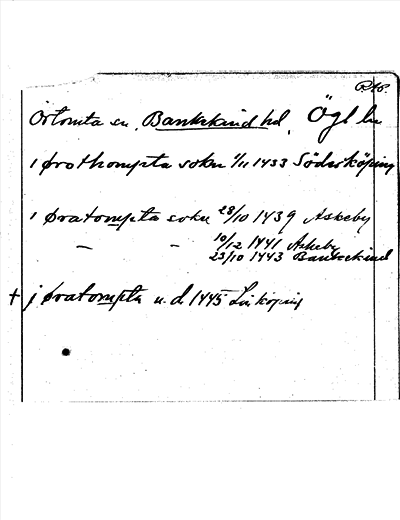 Örtomta sn, Bankekind hd, Ögl ln
i ørothompta sokn 1/11 1433 Söderköping
i øratompta sokn 28/10 1439 Askeby
— — 10/12 1441 Askeby
23/10 1443 Bankekind
+ j øratompta u. d. 1445 Linköping